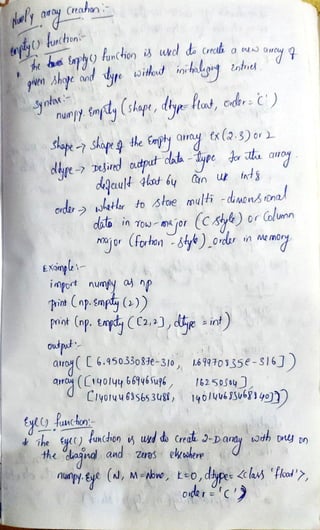 NumPy array Creation:-
Empty() function:-
* the Empty() function is used to create a new array of
given shape and type without initializing entries.
Syntax:-
numpy.Empty(shape, dtype=float, order='C')
Shape → Shape of the Empty array Ex(2,3) or 2
dtype → Desired output data-type for the array.
default float 64 Can use int8
order → whether to store multi-dimensional
data in row-major (C style) or Column
major (fortran-style) order in memory
Example:-
import numpy as np
print(np.empty(2))
print(np.Empty([2,2], dtype=int)
output:-
array([6.95033087e-310, 1.69970835e-316])
array([[140144669465496, 16250304],
Eye() function:-
* The eye() function is used to Create 2-D array with ones on
the diagonal and zeros elsewhere
numpy.eye(N, M=None, k=0, dtype=<class 'float'>,
order='C')